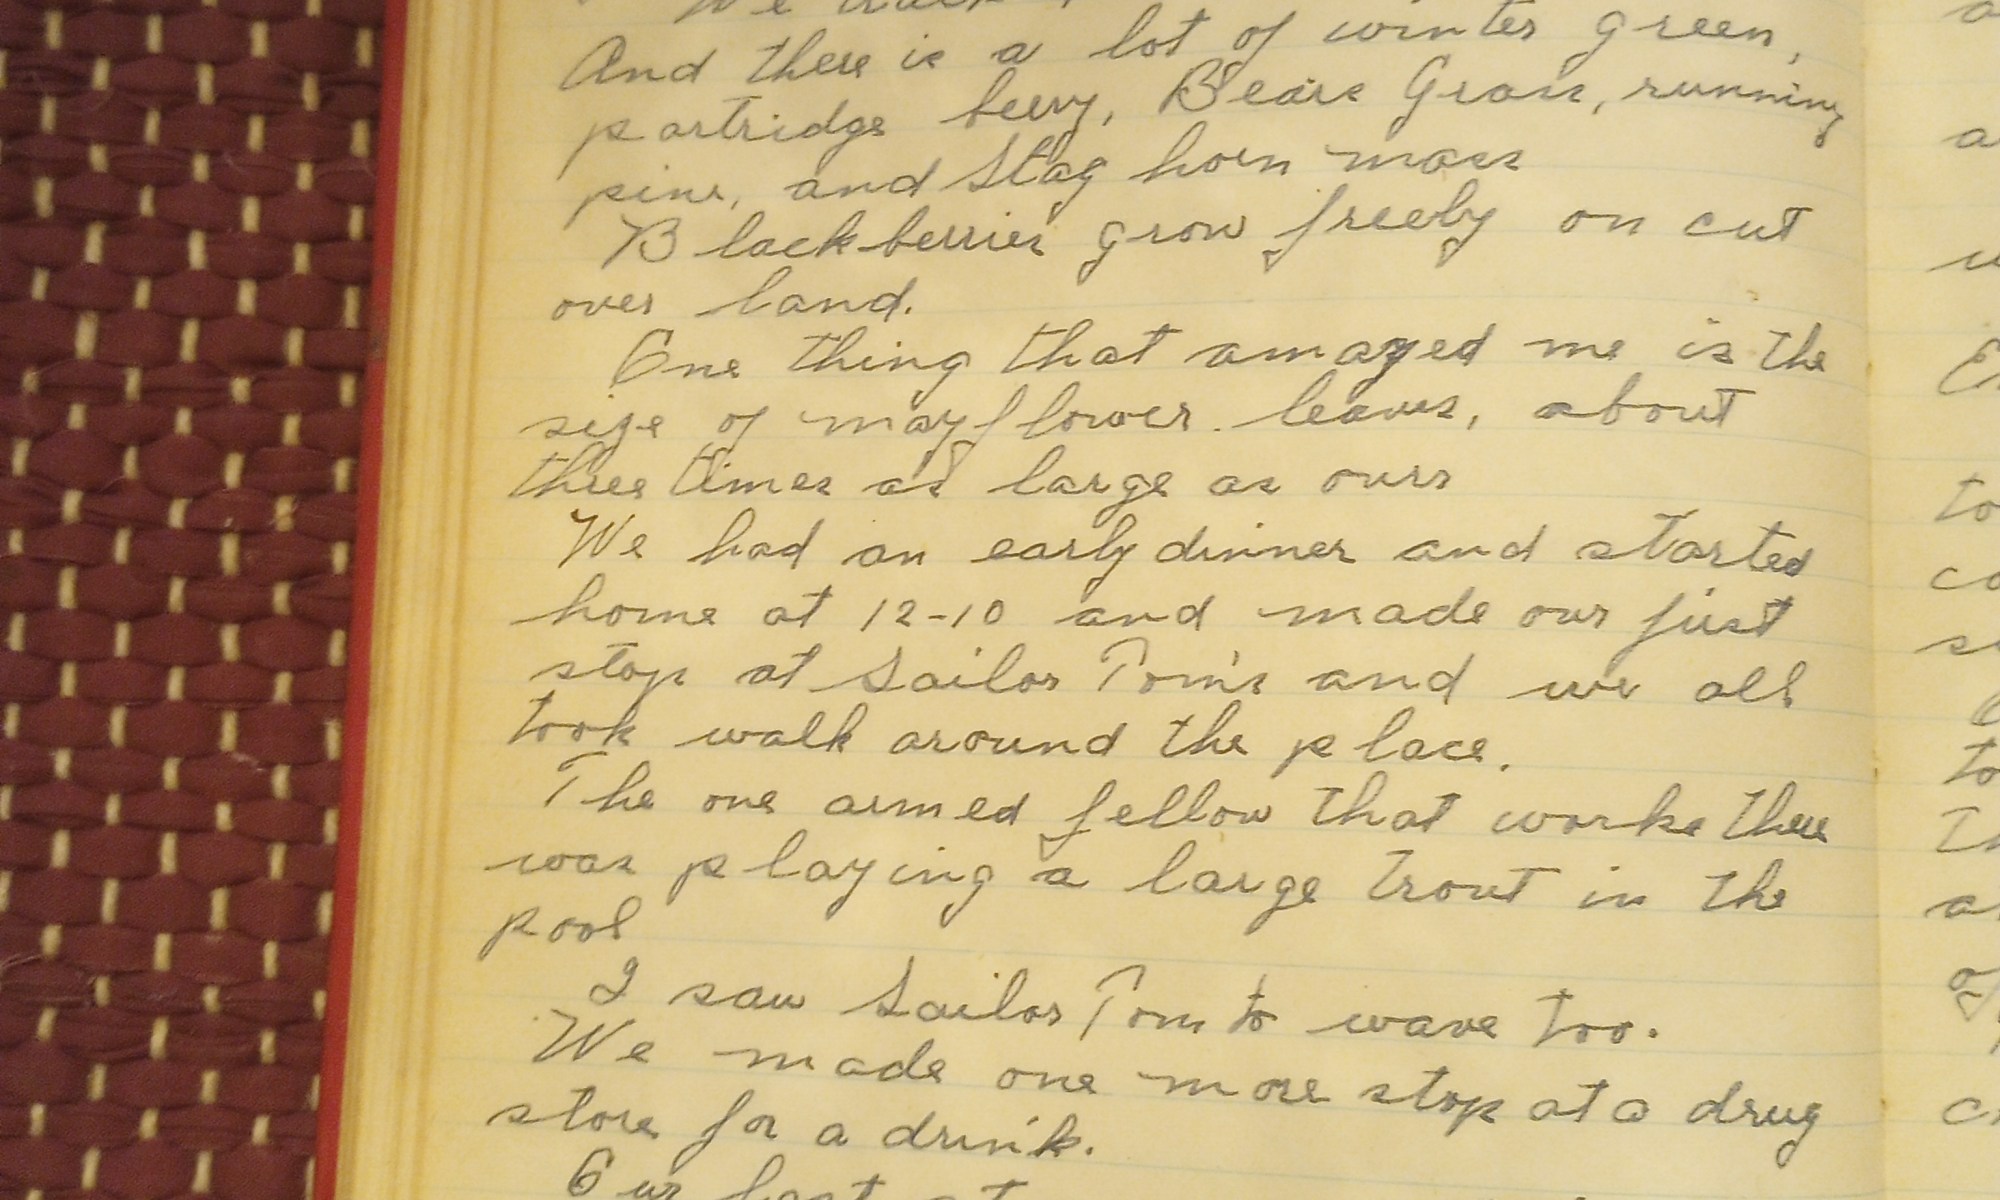 We
And there is a lot of winter green,
partridge berry, Bears Grass, running
pine, and Stag horn moss
Blackberries grow freely on cut
over land.
One thing that amazed me is the
size of mayflower leaves, about
three times as large as ours
We had an early dinner and started
home at 12-10 and made our first
stop at Sailor Tom's and we all
took walk around the place.
The one armed fellow that works there
was playing a large trout in the
pool
I saw Sailor Tom to wave too.
We made one more stop at a drug
store for a drink.
Our at